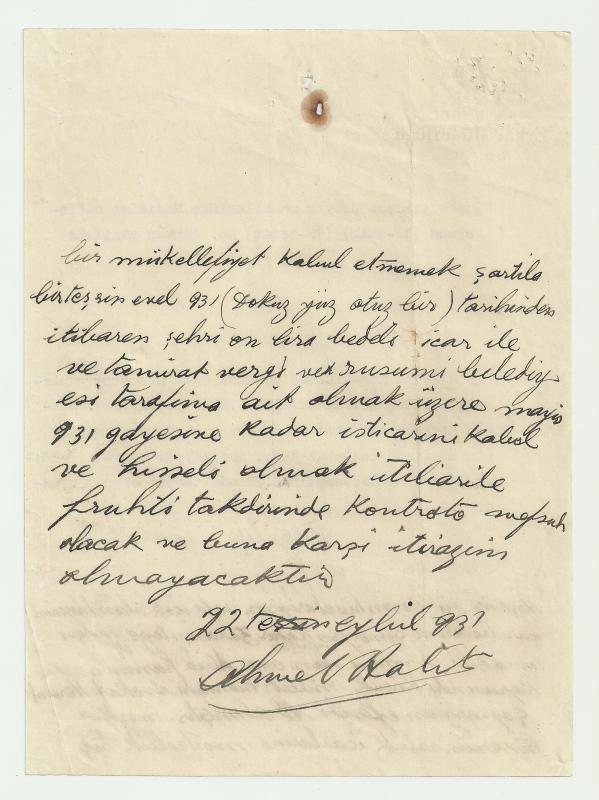 bir mükellefiyet kabul etmemek şartile
birteşrin evel 931 (Dokuz yüz otuz bir) tarihinden
itibaren şehri on lira bedeli icar ile
ve tamirat vergi ve rusumi belediy
esi tarafıma ait olmak üzere mayıs
931 gayesine kadar isticarini kabul
ve hisseli olmak itibarile
fruhti takdirinde kontroto mefsuh
olacak ve buna karşi itirazim
olmayacaktır
22 eylül 931
Ahmet Halit